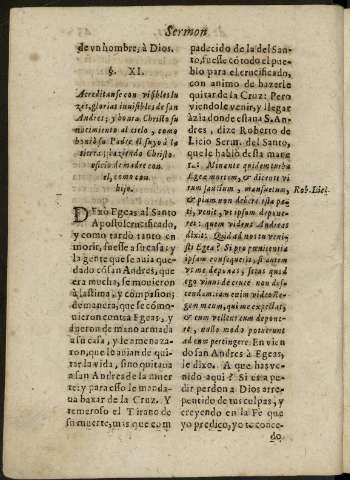 Sermon
de vn hombre, à Dios.
§. XI.
Acreditanse con visibles lu
zes, glorias inuisibles de san
Andres; y honra Christo su
nacimiento al cielo, como
honrò su Padre el suyo à la
tierra; haziendo Christo
oficio de madre con
el, como con
hijo.
DExò Egeas al Santo
Apostol crucificado,
y como tardò tanto en
morir, fuesse a su casa: y
la gente que se auia que-
dado cõ san Andres, que
era mucha, se mouieron
à lastima, y compasion;
de manera, que se cõmo-
uieron contra Egeas, y
fueron de mano armada
a su casa, y le amenaza-
ron, que le auian de qui-
tar la vida, sino quitaua
a san Andres de la muer
te; y para esso le manda-
ua baxar de la Cruz. Y
temeroso el Tirano de
su muerte, mas que com
padecido de la del San-
to, fuesse cõ todo el pue-
blo para el crucificado,
con animo de hazerle
quitar de la Cruz: Pero
viendole venir, y llegar
àzia donde estaua S. An-
dres, dize Roberto de
Licio Serm. del Santo,
que le habiò desta mane
ra: Minante quidem turba
Egeæ mortem, & dicente vi
rum sanctum, mansuetum,
& pium non debere ista pa-
ti, venit, vt ipsum depone-
ret: quem videns Andreas
dixit: Quid ad nos tu veni-
sti Egea? Si pro pœnitentia
ipsam consequeris, si autem
vt me deponas, scias quod
ego viuus de cruce non des-
cendam: iam enim video Re-
gem meum, qui me expectat,
& cum vellent eum depone-
re, nullo modo potuerunt
ad eum pertingere. En vien
do san Andres à Egeas,
le dixo. A que has ve-
nido aqui? Si es a pe-
dir perdon a Dios arre-
pentido de tus culpas, y
creyendo en la Fe que
yo predico, yo te conce-
do.
Rob. Lici.